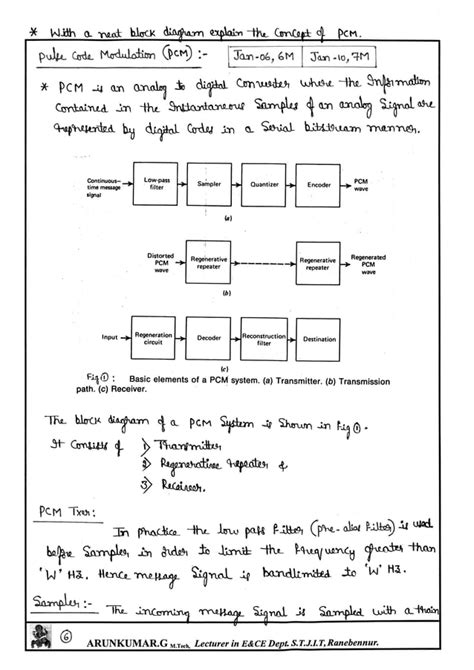 * With a neat block diagram explain the concept of PCM.
Pulse Code Modulation (PCM) :- Jan-06, 6M Jan-10, 7M
* PCM is an analog to digital Converter where the Information
Contained in the Instantaneous Samples of an analog Signal are
represented by digital Codes in a Serial bitstream manner.
Continuous-time message signal
Low-pass filter
Sampler
Quantizer
Encoder
PCM wave
(a)
Distorted PCM wave
Regenerative repeater
Regenerative repeater
Regenerated PCM wave
(b)
Input
Regeneration circuit
Decoder
Reconstruction filter
Destination
(c)
Fig ① : Basic elements of a PCM system. (a) Transmitter. (b) Transmission
path. (c) Receiver.
The block diagram of a PCM System is Shown in Fig ①.
It Consists of 1) Transmitter
2) Regenerative repeater &
3) Receiver.
PCM Txer:
In practice the low pass Filter (pre-alias Filter) is used
before Sampler in order to limit the frequency greater than
'W' Hz. Hence message Signal is bandlimited to 'W' Hz.
Sampler :- The incoming message Signal is Sampled with a train
⑥ ARUNKUMAR.G M.Tech, Lecturer in E&CE Dept. S.T.J.I.T, Ranebennur.